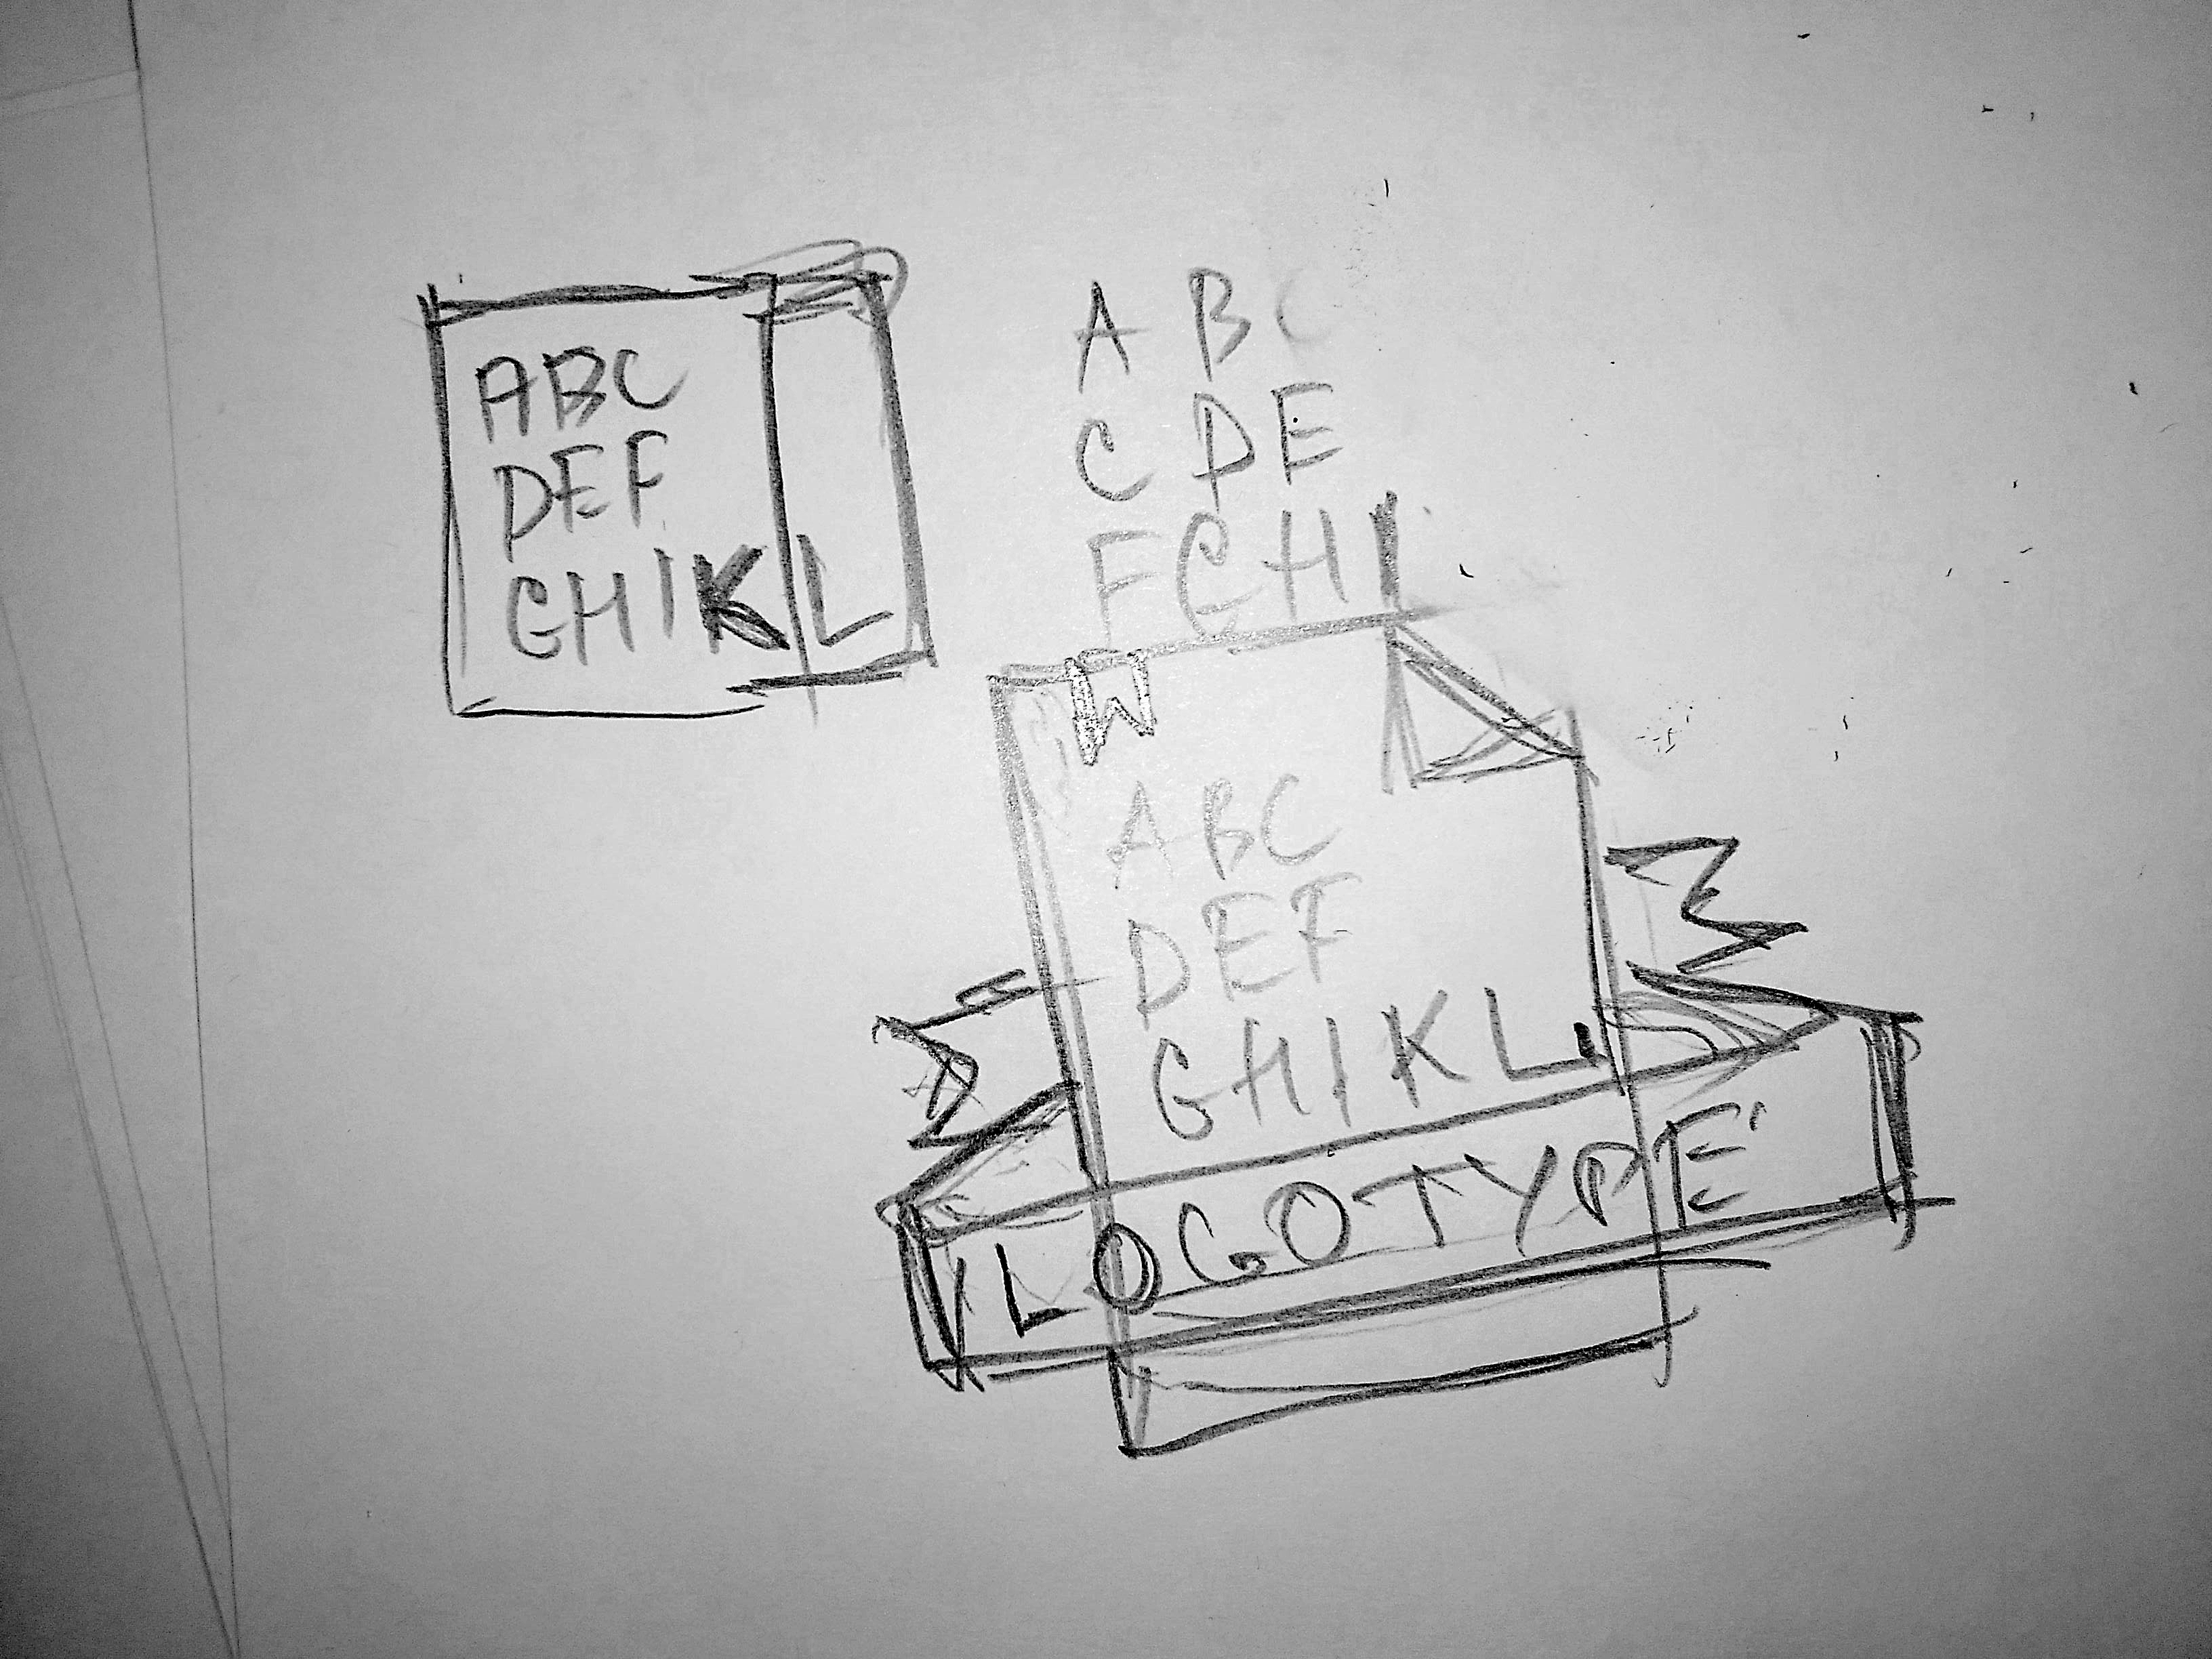 ABC
DEF
GHIKL
A B C
C D E
F G H I
A B C
D E F
G H I K L
LOGOTYPE